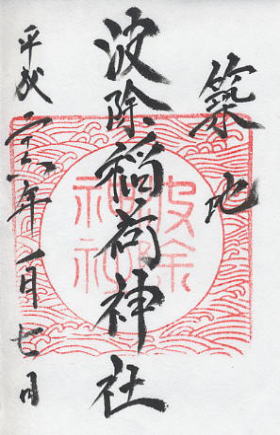 築地
波除稲荷神社
平成二十六年一月七日
波除
神社